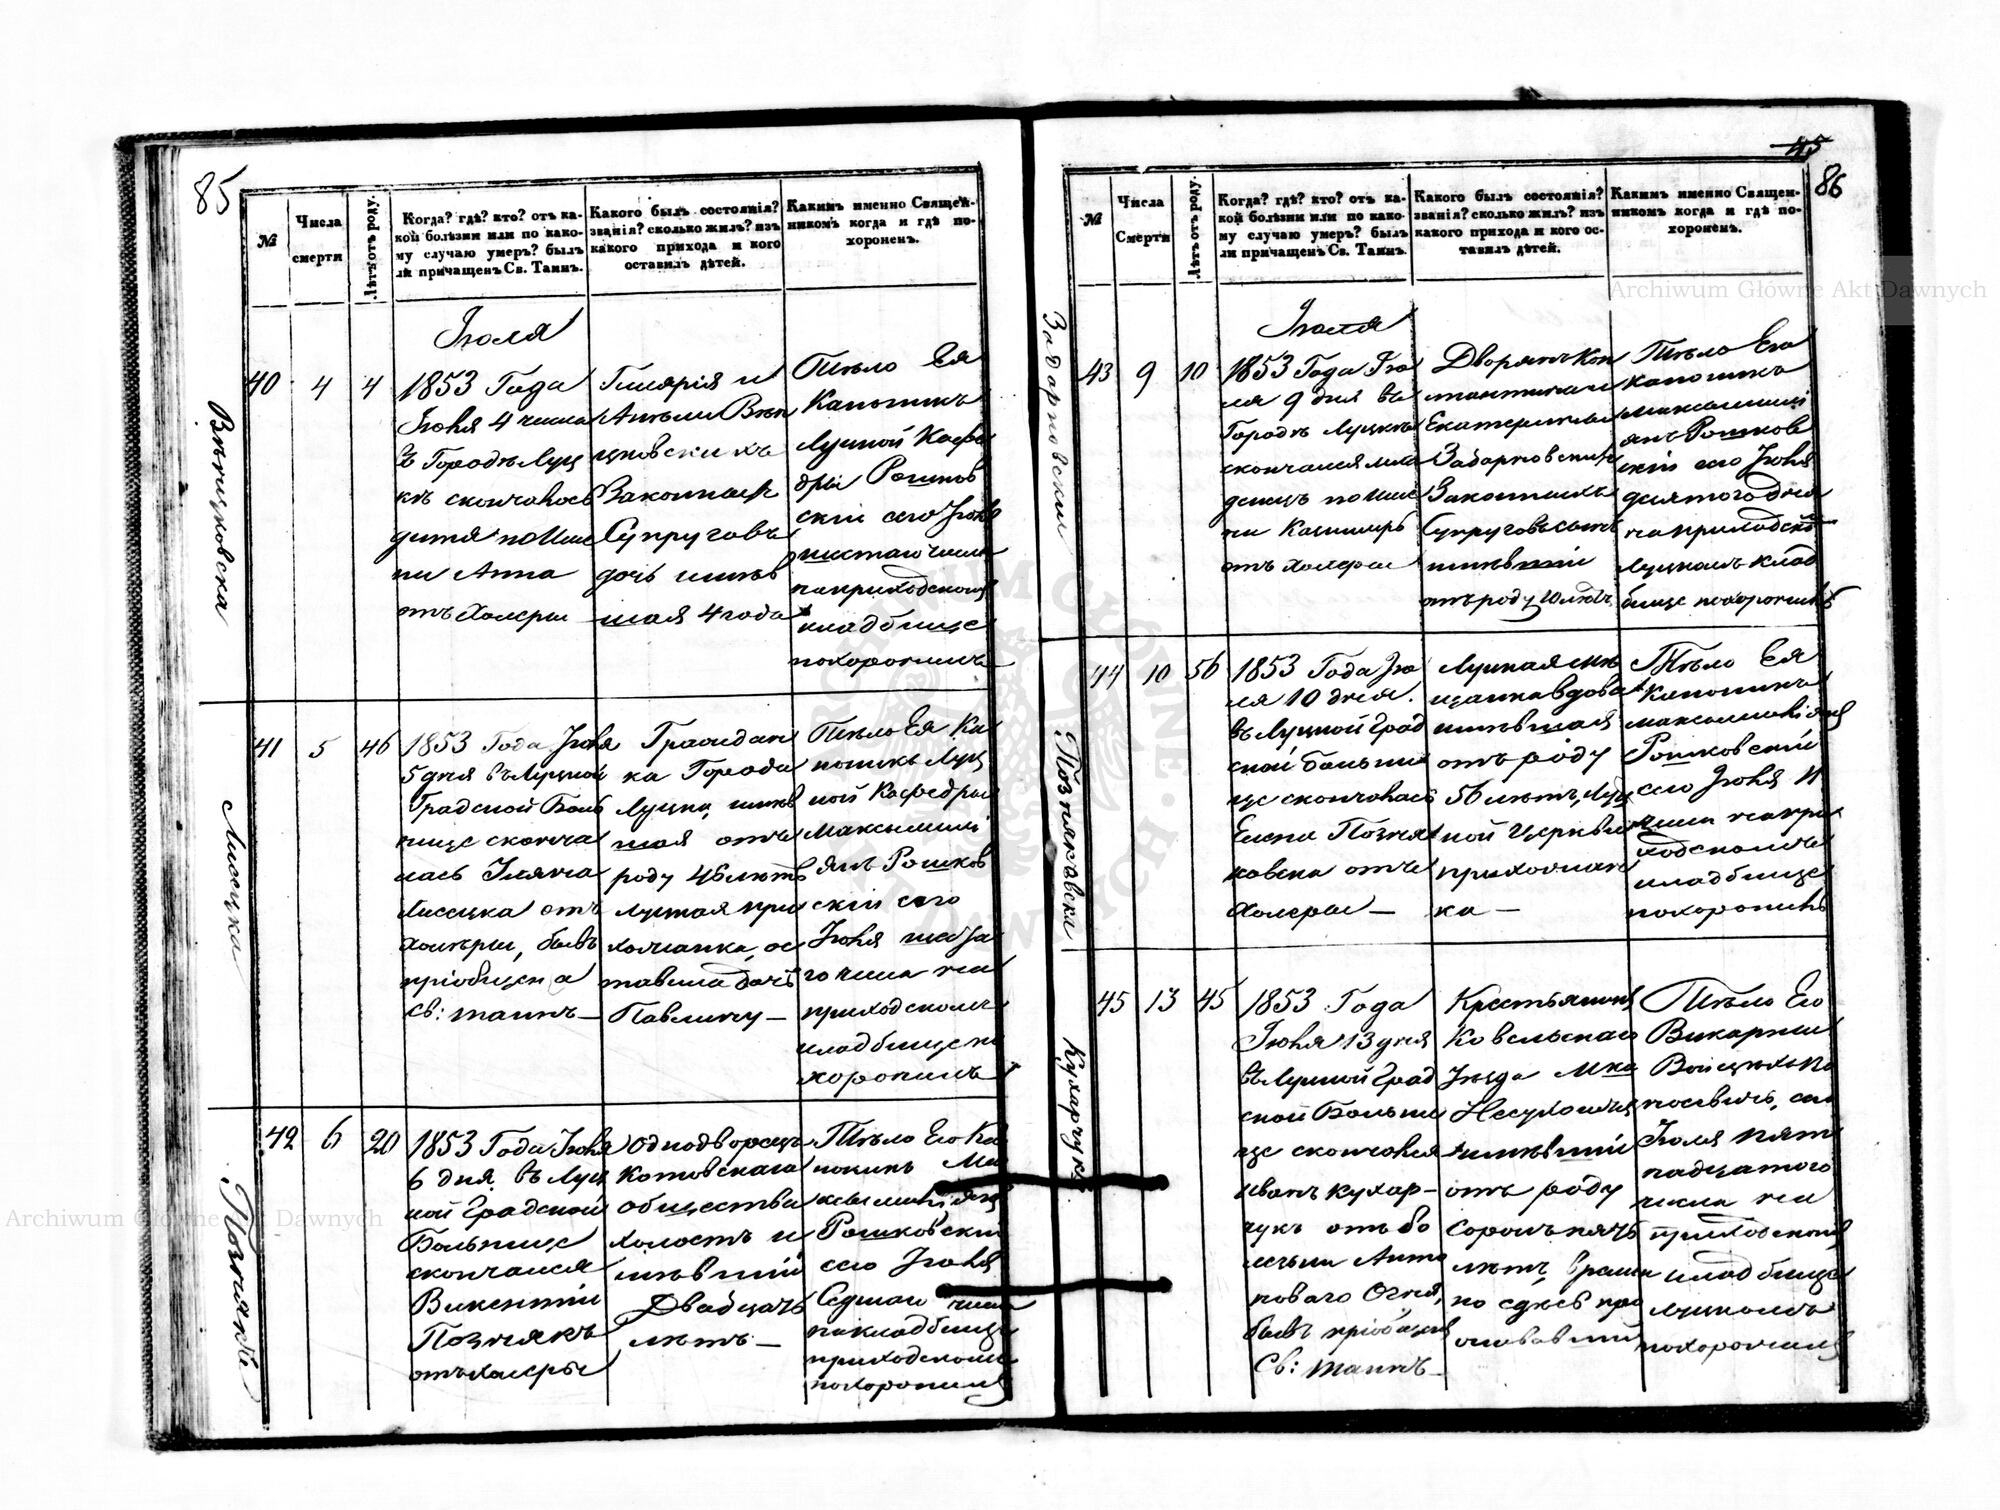 85
№
Числа
смерти
Лѣтъ отъ роду.
Когда? гдѣ? кто? отъ ка-
кой болѣзни или по како-
му случаю умеръ? былъ
ли причащенъ Св. Таинъ.
Какого былъ состоянія?
званія? сколько жилъ? изъ
какого прихода и кого
оставилъ дѣтей.
Какимъ именно Священ-
никомъ когда и гдѣ по-
хороненъ.
40
4
4
Іюля
1853 Года
Іюня 4 числа
въ Городѣ Луц
кѣ скончалось
дитя по име
ни Анна
отъ холеры
Гилярія и
Законныхъ
Супруговъ
дочь имѣв
шая 4 года
Тѣло Ея
Каноникъ
Луцкой Кафе
дры Рошков
скій сего Іюня
шестаго числа
на приходскомъ
кладбище
похоронилъ
41
5
46
Лисецка
1853 Года Іюня
5 дня въ Луцкой
Градской Боль
нице сконча
лась
Лисецка отъ
холѣры, бывъ
пріобщена
Св: таинъ —
Граждан
ка Города
Луцка, имѣв
шая отъ
роду 46 лѣтъ
Луцкая при
хожанка, ос
тавила дочь
Павлину —
Тѣло Ея Ка
ноникъ Луц
кой Кафедры
Максимилі
янъ Рошков
скій сего
Іюня
го числа на
приходскомъ
кладбище по
хоронилъ
42
6
20
1853 Года Іюня
6 дня въ Луц
кой Градской
Больнице
скончался
Викентій
Познякъ
отъ холеры
Однодворецъ
Котовскаго
общества
холостъ и
мѣвшій
Двадцать
лѣтъ —
Тѣло Его Ка
ноникъ Ма
ксимиліянъ
Рошковскій
сего Іюня
Седмаго числа
на кладбище
приходскомъ
похоронилъ
45
86
№
Числа
Смерти
Лѣтъ отъ роду.
Когда? гдѣ? кто? отъ ка-
кой болѣзни или по како-
му случаю умеръ? былъ
ли причащенъ Св. Таинъ.
Какого былъ состоянія?
званія? сколько жилъ? изъ
какого прихода и кого ос-
тавилъ дѣтей.
Какимъ именно Священ-
никомъ когда и гдѣ по-
хороненъ.
43
9
10
Іюля
1853 Года Ію
ля 9 дня въ
Городѣ Луцкѣ
скончался мла
денецъ по име
ни Казимиръ
отъ холеры
Дворянъ Кон
стантина и
Екатерины
Законныхъ
Супруговъ сынъ
имѣвшій
отъ роду 10 лѣтъ
Тѣло Его
Каноникъ
Максимилі
янъ Рошков
скій сего Іюня
девятого дня
на приходско
Луцкомъ клад
бище похоронилъ
44
10
56
Познякавска
1853 Года Ію
ля 10 дня
въ Луцкой Град
ской больни
це скончалась
Елена Позня
ковска отъ
холеры —
Луцкая мѣ
щанка вдова
имѣвшая
отъ роду
56 лѣтъ, Луц
кой Церкви
прихожан
ка —
Тѣло Ея
Каноникъ
Максимиліянъ
Рошковскій
сего Іюня 11
числа на при
ходскомъ
кладбище
похоронилъ
45
13
45
Кухарчукъ
1853 Года
Іюня 13 дня
въ Луцкой Град
ской Больни
це скончался
Иванъ Кухар-
чукъ отъ бо
лезни Анто
новаго Огня,
бывъ пріобщенъ
Св: таинъ —
Крестьянинъ
Ковельскаго
Уѣзда
имѣвшій
отъ роду
сорокъ пять
лѣтъ,
Тѣло Его
Викарный
сего
Іюля пят
надцатого
числа на
приходскомъ
кладбище
Луцкомъ
похоронилъ
Archiwum Główne Akt Dawnych
Archiwum Główne Akt Dawnych
ARCHIWUM GŁÓWNE AKT DAWNYCH